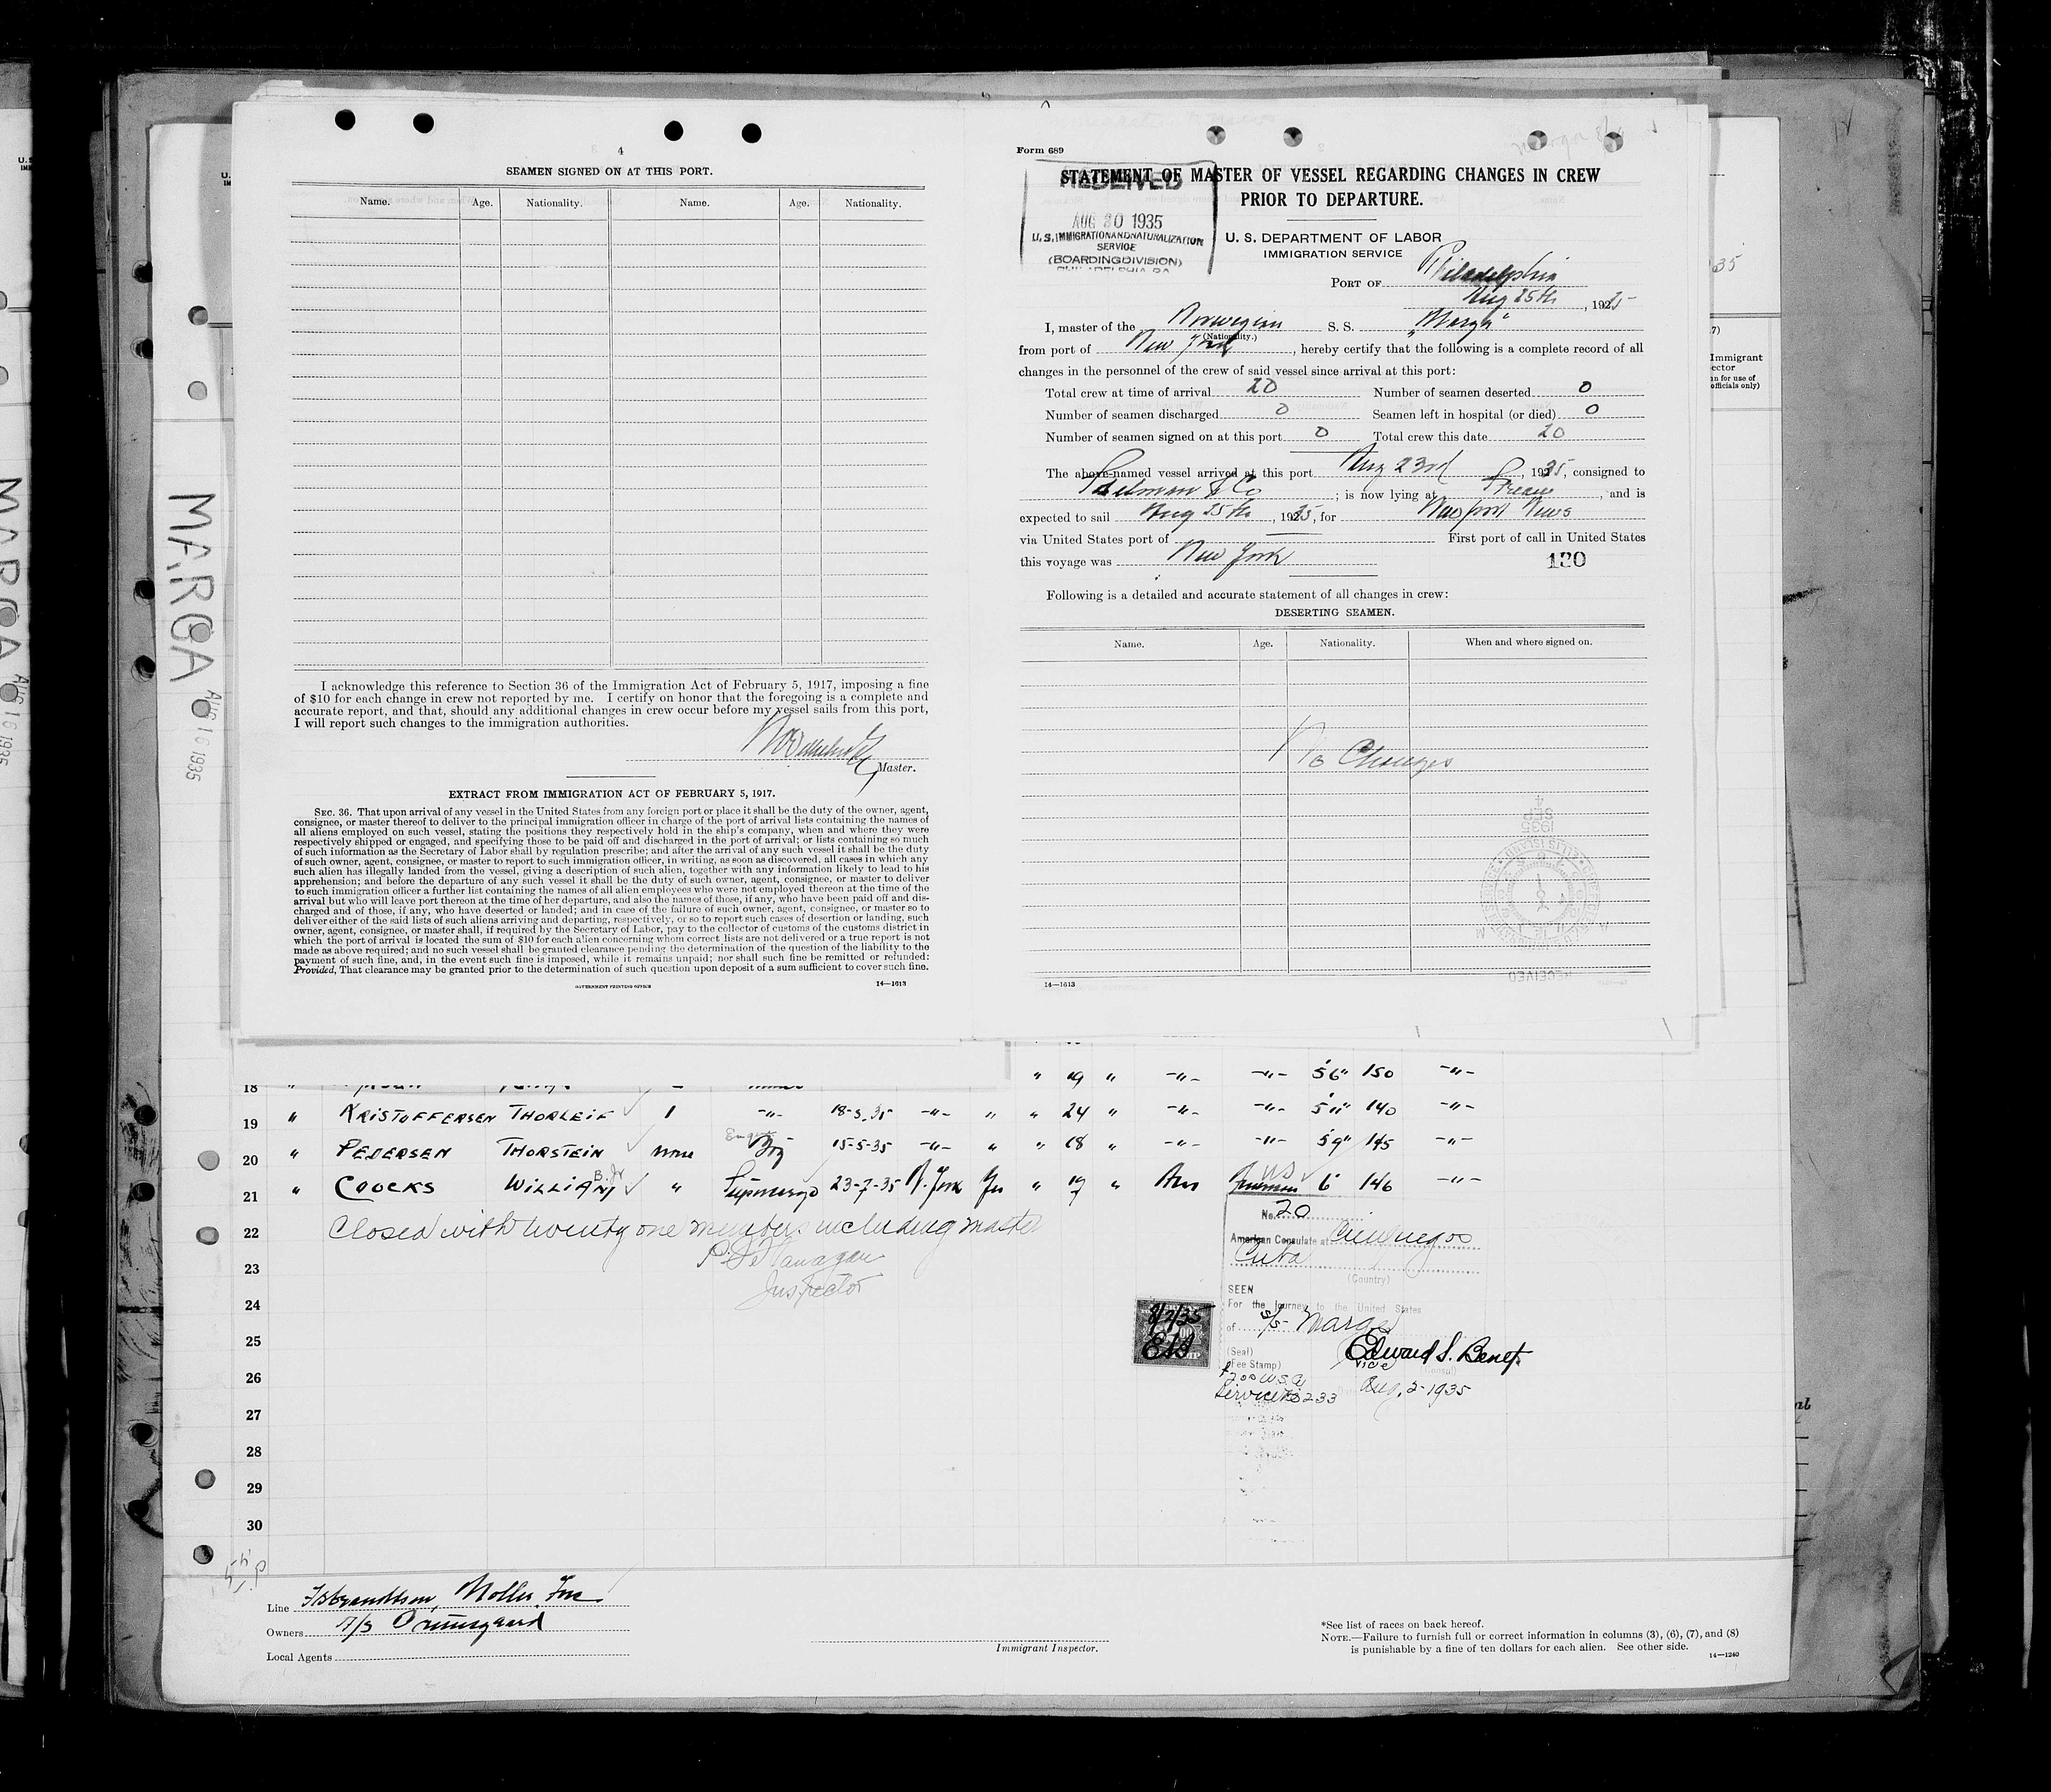 4
SEAMEN SIGNED ON AT THIS PORT.
Name. Age. Nationality. Name. Age. Nationality.
I acknowledge this reference to Section 36 of the Immigration Act of February 5, 1917, imposing a fine
of $10 for each change in crew not reported by me. I certify on honor that the foregoing is a complete and
accurate report, and that, should any additional changes in crew occur before my vessel sails from this port,
I will report such changes to the immigration authorities.
Master.
EXTRACT FROM IMMIGRATION ACT OF FEBRUARY 5, 1917.
SEC. 36. That upon arrival of any vessel in the United States from any foreign port or place it shall be the duty of the owner, agent,
consignee, or master thereof to deliver to the principal immigration officer in charge of the port of arrival lists containing the names of
all aliens employed on such vessel, stating the positions they respectively hold in the ship's company, when and where they were
respectively shipped or engaged, and specifying those to be paid off and discharged in the port of arrival; or lists containing so much
of such information as the Secretary of Labor shall by regulation prescribe; and after the arrival of any such vessel it shall be the duty
of such owner, agent, consignee, or master to report to such immigration officer, in writing, as soon as discovered, all cases in which any
such alien has illegally landed from the vessel, giving a description of such alien, together with any information likely to lead to his
apprehension; and before the departure of any such vessel it shall be the duty of such owner, agent, consignee, or master to deliver
to such immigration officer a further list containing the names of all alien employees who were not employed thereon at the time of the
arrival but who will leave port thereon at the time of her departure, and also the names of those, if any, who have been paid off and dis-
charged and of those, if any, who have deserted or landed; and in case of the failure of such owner, agent, consignee, or master so to
deliver either of the said lists of such aliens arriving and departing, respectively, or so to report such cases of desertion or landing, such
owner, agent, consignee, or master shall, if required by the Secretary of Labor, pay to the collector of customs of the customs district in
which the port of arrival is located the sum of $10 for each alien concerning whom correct lists are not delivered or a true report is not
made as above required; and no such vessel shall be granted clearance pending the determination of the question of the liability to the
payment of such fine, and, in the event such fine is imposed, while it remains unpaid; nor shall such fine be remitted or refunded:
Provided, That clearance may be granted prior to the determination of such question upon deposit of a sum sufficient to cover such fine.
GOVERNMENT PRINTING OFFICE 14—1613
Form 689
STATEMENT OF MASTER OF VESSEL REGARDING CHANGES IN CREW
PRIOR TO DEPARTURE.
RECEIVED
AUG 30 1935
U. S. IMMIGRATION AND NATURALIZATION
SERVICE
(BOARDING DIVISION)
PHILADELPHIA PA
U. S. DEPARTMENT OF LABOR
IMMIGRATION SERVICE
PORT OF Philadelphia
Aug 25th, 1925
I, master of the Norwegian S. S. "Marga"
(Nationality.)
from port of New York, hereby certify that the following is a complete record of all
changes in the personnel of the crew of said vessel since arrival at this port:
Total crew at time of arrival 20 Number of seamen deserted 0
Number of seamen discharged 0 Seamen left in hospital (or died) 0
Number of seamen signed on at this port 0 Total crew this date 20
The above-named vessel arrived at this port Aug 23rd, 1935, consigned to
& Co; is now lying at, and is
expected to sail Aug 25th, 1935, for Newport News
via United States port of First port of call in United States
this voyage was New York 130
Following is a detailed and accurate statement of all changes in crew:
DESERTING SEAMEN.
Name. Age. Nationality. When and where signed on.
No Changes
1935
SEP
4
ELLIS ISLAND
RECEIVED
14—1613
MARGA
AUG 16 1935
MARGA
AUG 16 1935
Immigrant
18 " " 19 " -"- -"- 5'6" 150 -"-
19 " KRISTOFFERSEN THORLEIF 1 -"- 18-3-35 -"- " " 24 " -"- -"- 5'11" 140 -"-
20 " PEDERSEN THORSTEIN none Boy 15-5-35 -"- " " 18 " -"- -"- 5'9" 145 -"-
21 " COOCKS WILLIAM B. Jr " 23-7-35 N. York Yes " 19 " Am US 6' 146 -"-
22 Closed with twenty one members including master
23 Inspector
24
25
26
27
28
29
30
No. 20
American Consulate at Cienfuegos
Cuba
(Country)
SEEN
For the Journey to the United States
of S/S Marga
(Seal) Edward S. Benet
(Fee Stamp) Vice (Consul)
Service No 233 Aug. 2-1935
8/2/35
ESB
Line Isbrandtsen, Moller, Inc
Owners
Local Agents
Immigrant Inspector.
*See list of races on back hereof.
NOTE.—Failure to furnish full or correct information in columns (3), (6), (7), and (8)
is punishable by a fine of ten dollars for each alien. See other side.
14—1240